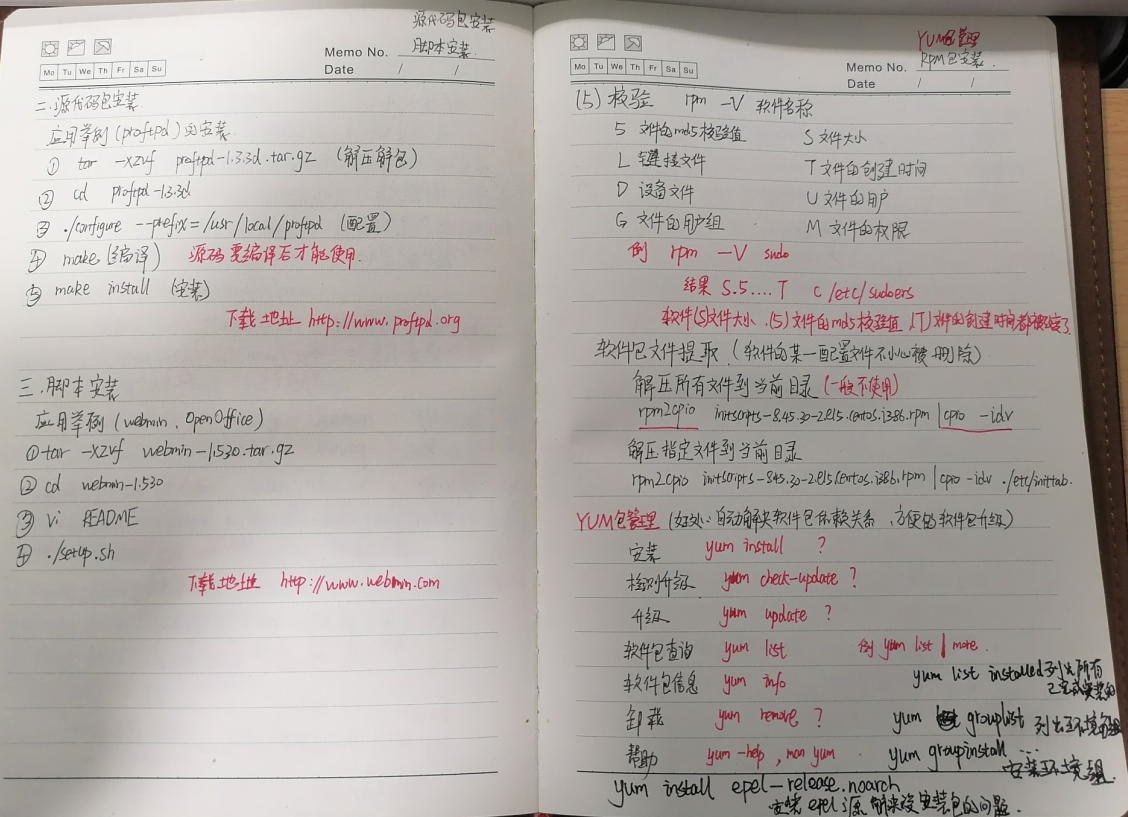 源代码包安装
脚本安装
Memo No.
Mo Tu We Th Fr Sa Su
Date / /
二.源代码包安装.
应用举例(proftpd)的安装
① tar -xzvf proftpd-1.3.3d.tar.gz (解压解包)
② cd proftpd-1.3.3d
③ ./configure --prefix=/usr/local/proftpd (配置)
④ make (编译) 源码要编译后才能使用.
⑤ make install (安装)
下载地址 http://www.proftpd.org
三.脚本安装
应用举例(webmin、OpenOffice)
① tar -xzvf webmin-1.530.tar.gz
② cd webmin-1.530
③ vi README
④ ./setup.sh
下载地址 http://www.webmin.com
YUM包管理
RPM包安装.
Memo No.
Mo Tu We Th Fr Sa Su
Date / /
(5) 校验 rpm -V 软件名称
5 文件的md5校验值 S 文件大小
L 链接文件 T 文件的创建时间
D 设备文件 U 文件的用户
G 文件的用户组 M 文件的权限
例 rpm -V sudo
结果 S.5....T c /etc/sudoers
软件(S)文件大小.(5)文件的md5校验值.(T)文件的创建时间都被改变了.
软件包文件提取(软件的某一配置文件不小心被删除)
解压所有文件到当前目录(一般不使用)
rpm2cpio initscripts-8.45.30-2.el5.centos.i386.rpm |cpio -idv
解压指定文件到当前目录
rpm2cpio initscripts-8.45.30-2.el5.centos.i386.rpm |cpio -idv ./etc/inittab.
YUM包管理(好处:自动解决软件包依赖关系、方便的软件包升级)
安装 yum install ?
检测升级 yum check-update ?
升级 yum update ?
软件包查询 yum list 例 yum list | more.
软件包信息 yum info yum list installed 列出所有
已完成安装的
卸载 yum remove ? yum grouplist 列出环境组
帮助 yum -help , man yum. yum groupinstall ...
安装环境组.
yum install epel-release.noarch
安装epel源 解决没安装包的问题.